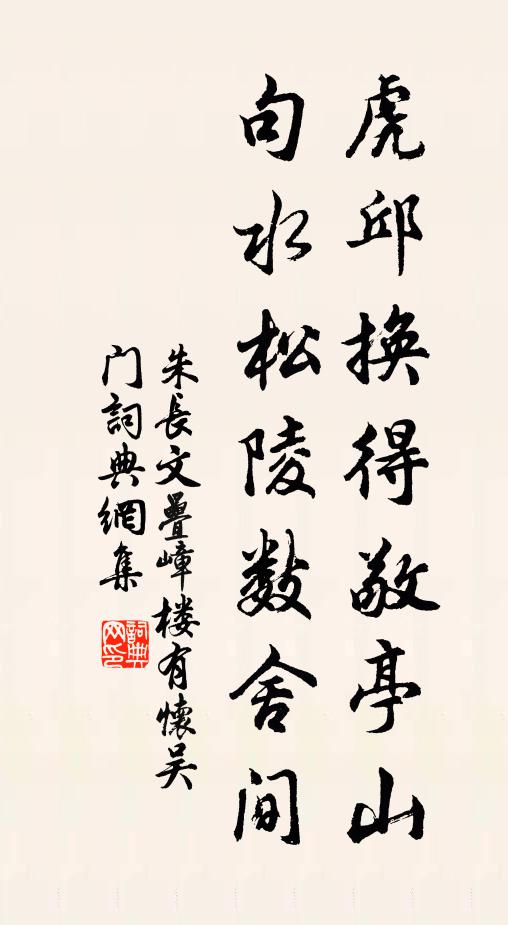 虎邱換得敬亭山
句水松陵數舍間
朱長文疊嶂楼有懷吴
门詞典網集
詞典
网印